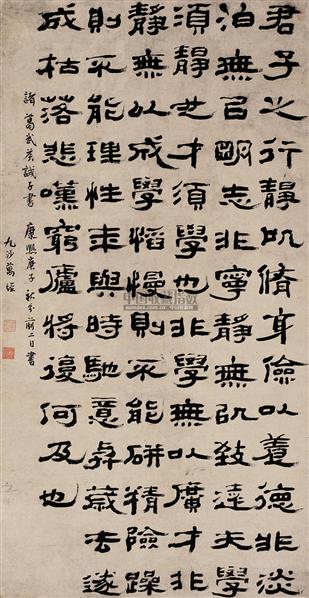 君子之行靜以脩身儉以養德非淡
泊無以明志非寧靜無以致遠夫學
須靜也才須學也非學無以廣才非
靜無以成學慆慢則不能研精險躁
則不能理性年與時馳意與歲去遂
成枯落悲嘆窮廬將復何及也
諸葛武矦誡子書 康熙庚子秋分前二日書
九沙萬經